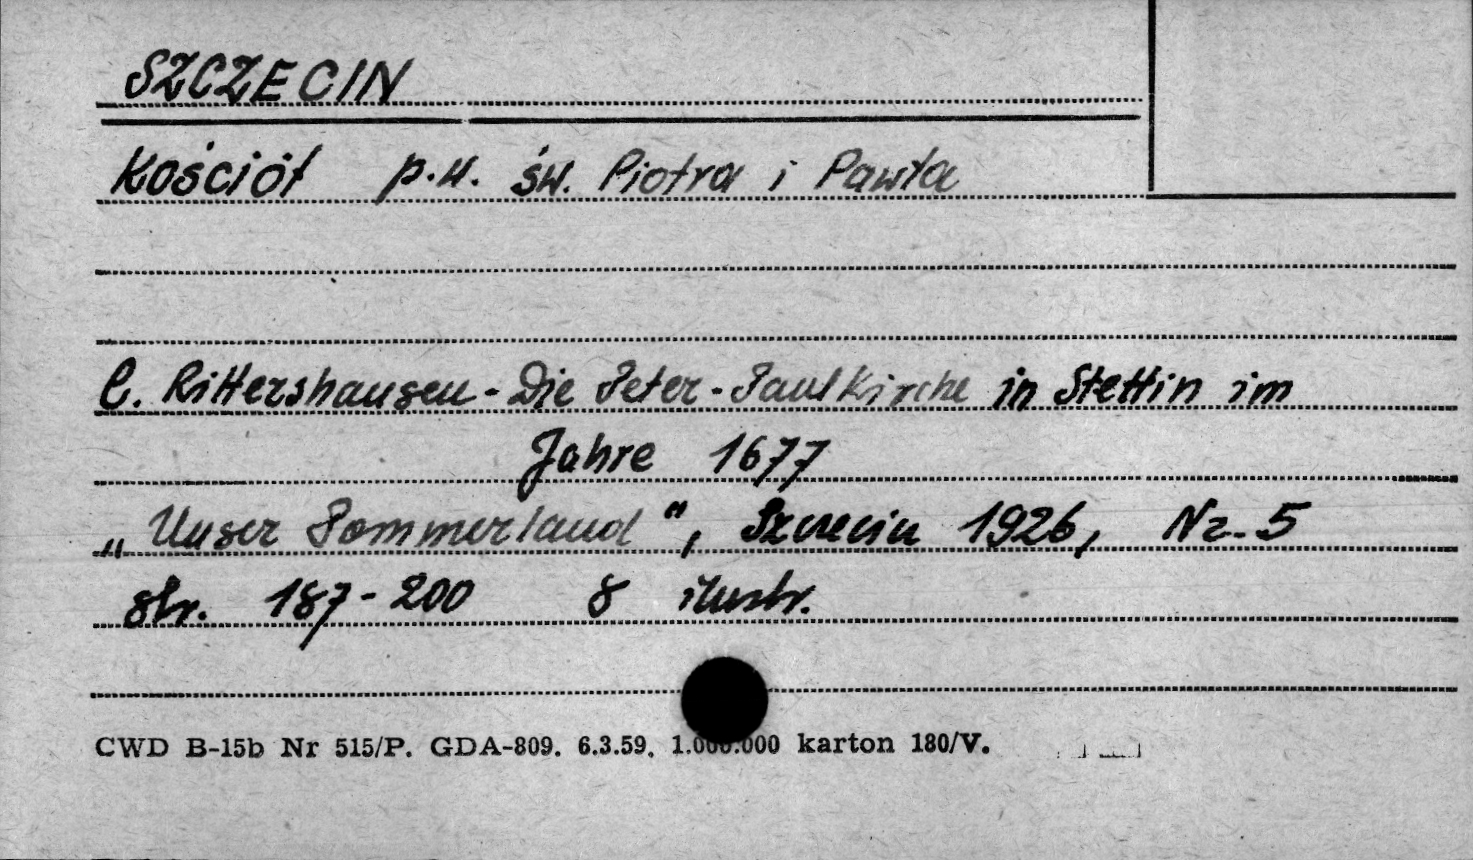 SZCZECIN
Kościół p.w. św. Piotra i Pawła
C. Rittershausen - Die Peter-Paulkirche in Stettin im
Jahre 1677
„Unser Pommerland", Szczecin 1926, Nr. 5
str. 187-200 8 ilustr.
CWD B-15b Nr 515/P. GDA-809. 6.3.59. 1.000.000 karton 180/V.